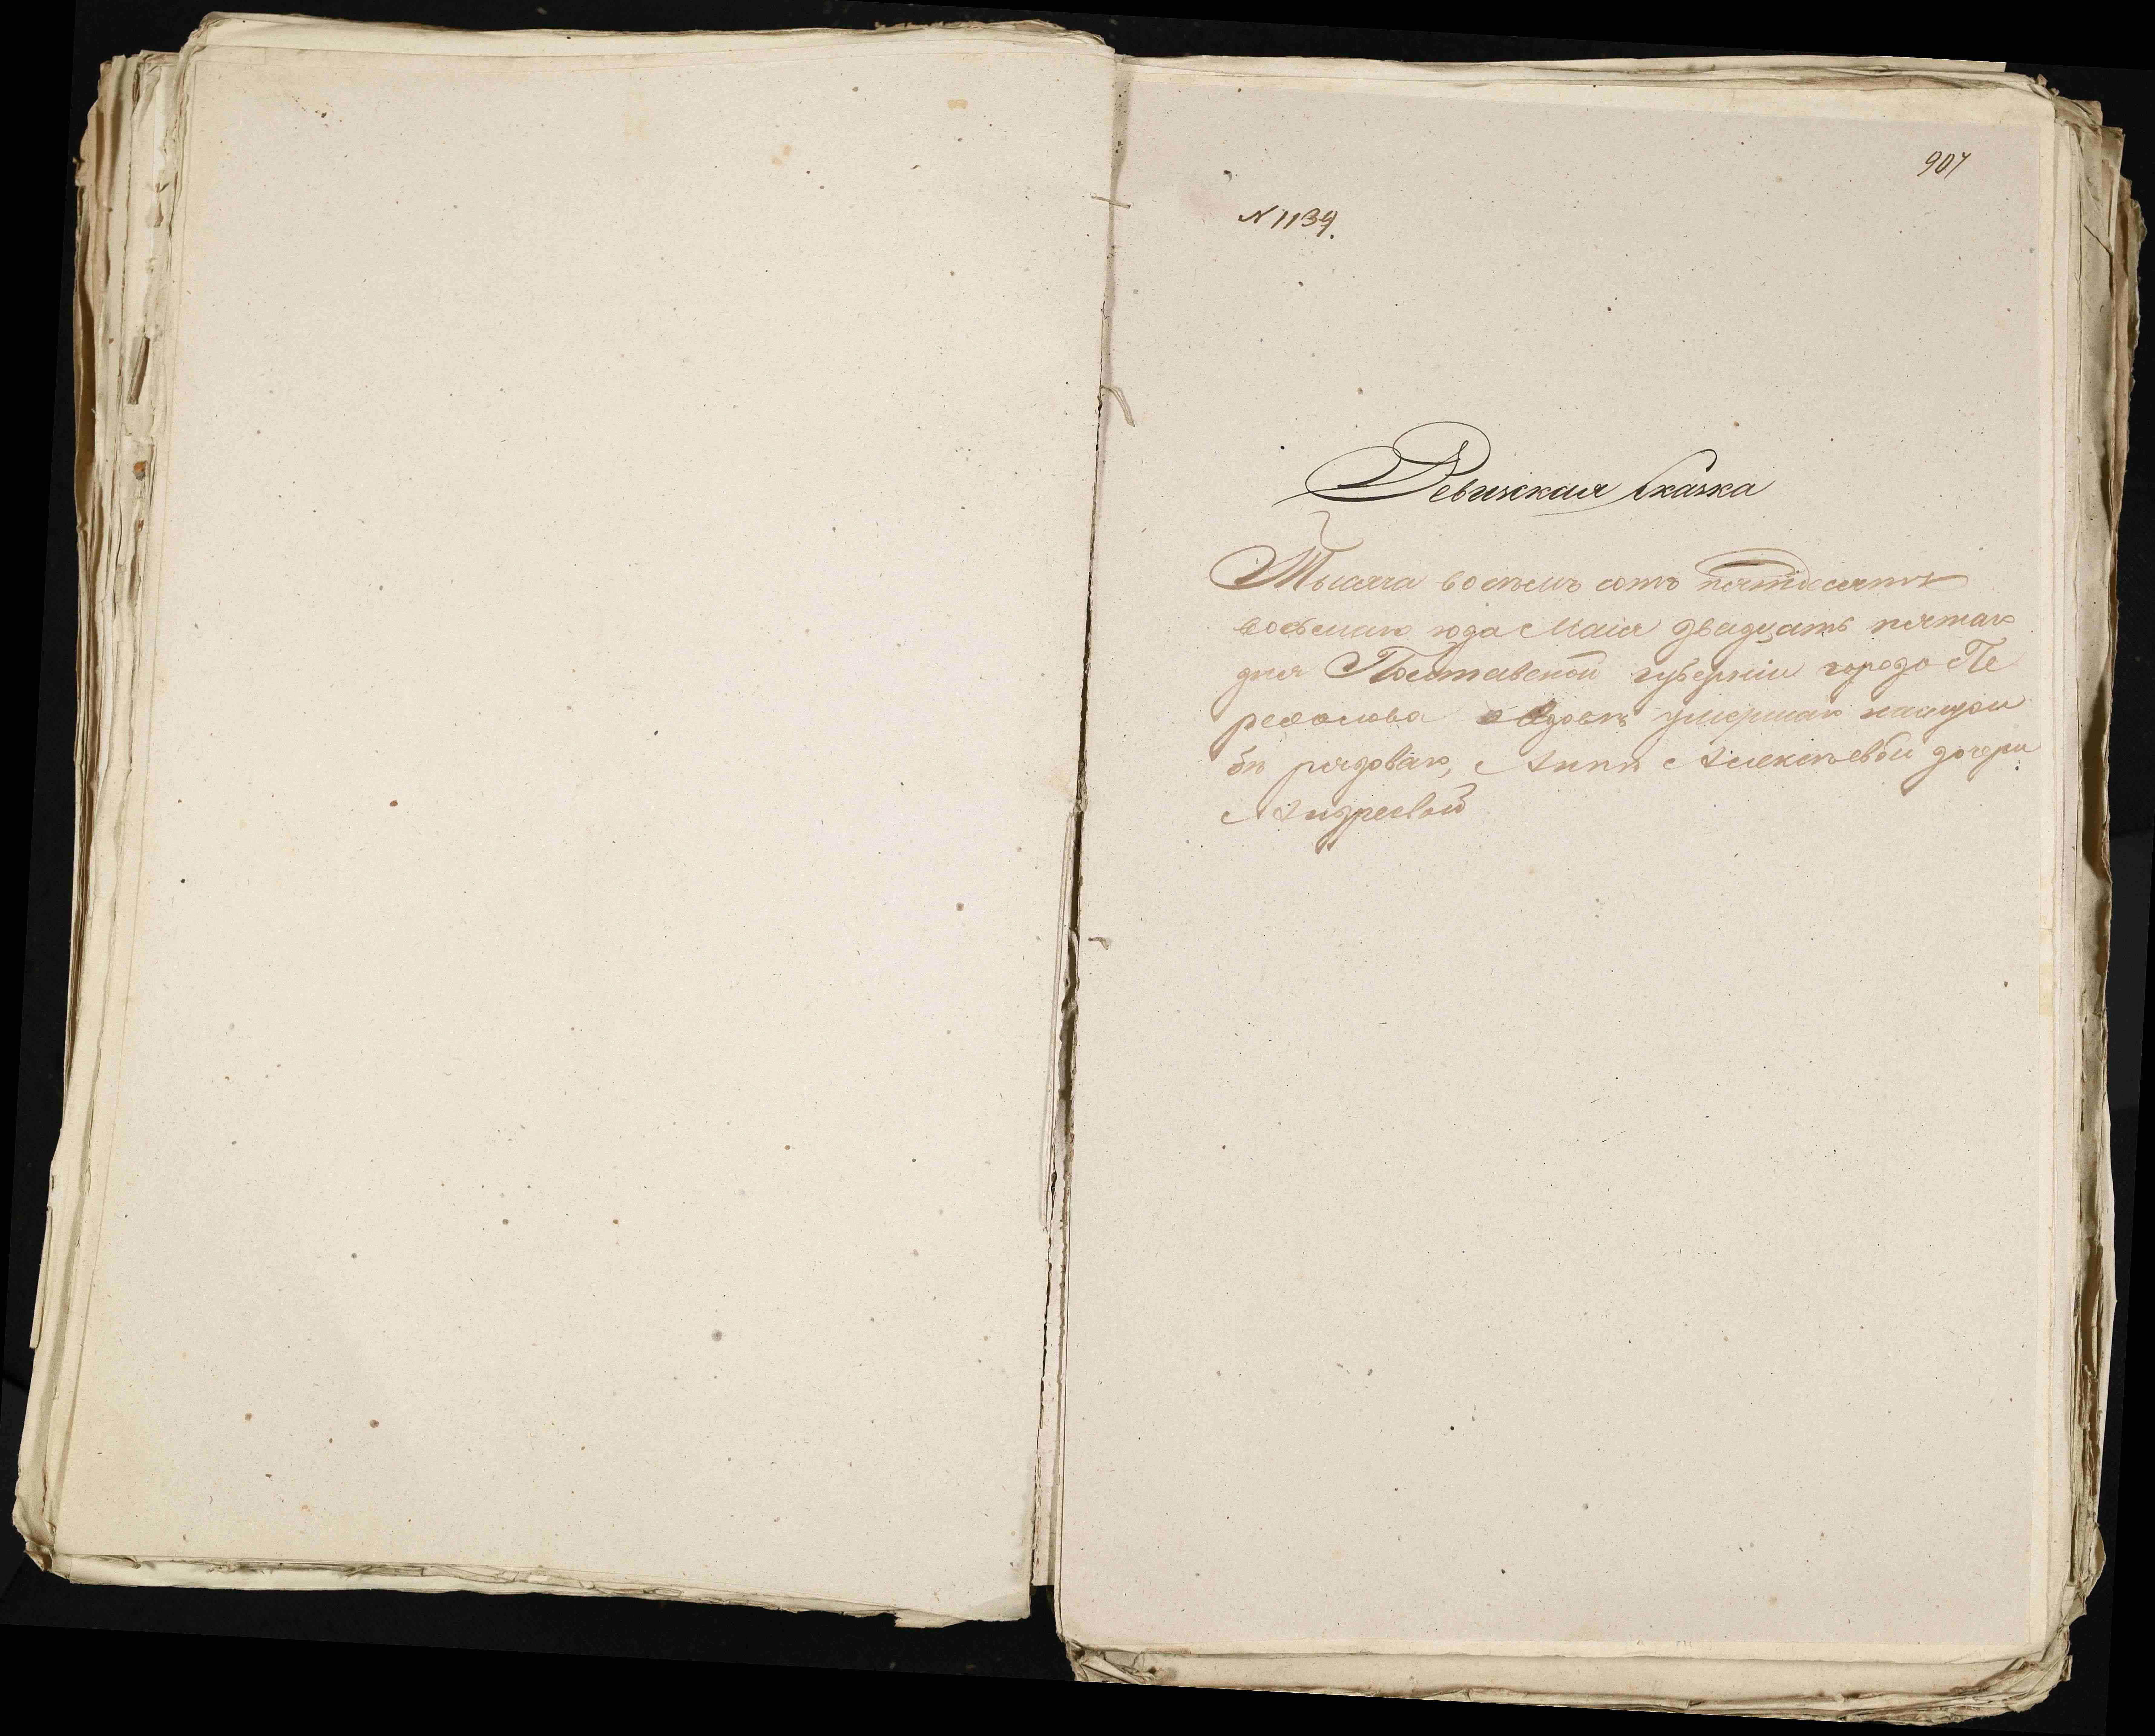 907
N 1139.
Ревизская Сказка
Тысяча восемь сотъ пятьдесятъ
восьмаго года Маія двадцать пятаго
дня Полтавской губерніи города Пе
реяслова о вдовѣ умершаго
рядоваго, Аннѣ Алексѣевой дочери
Андреевой